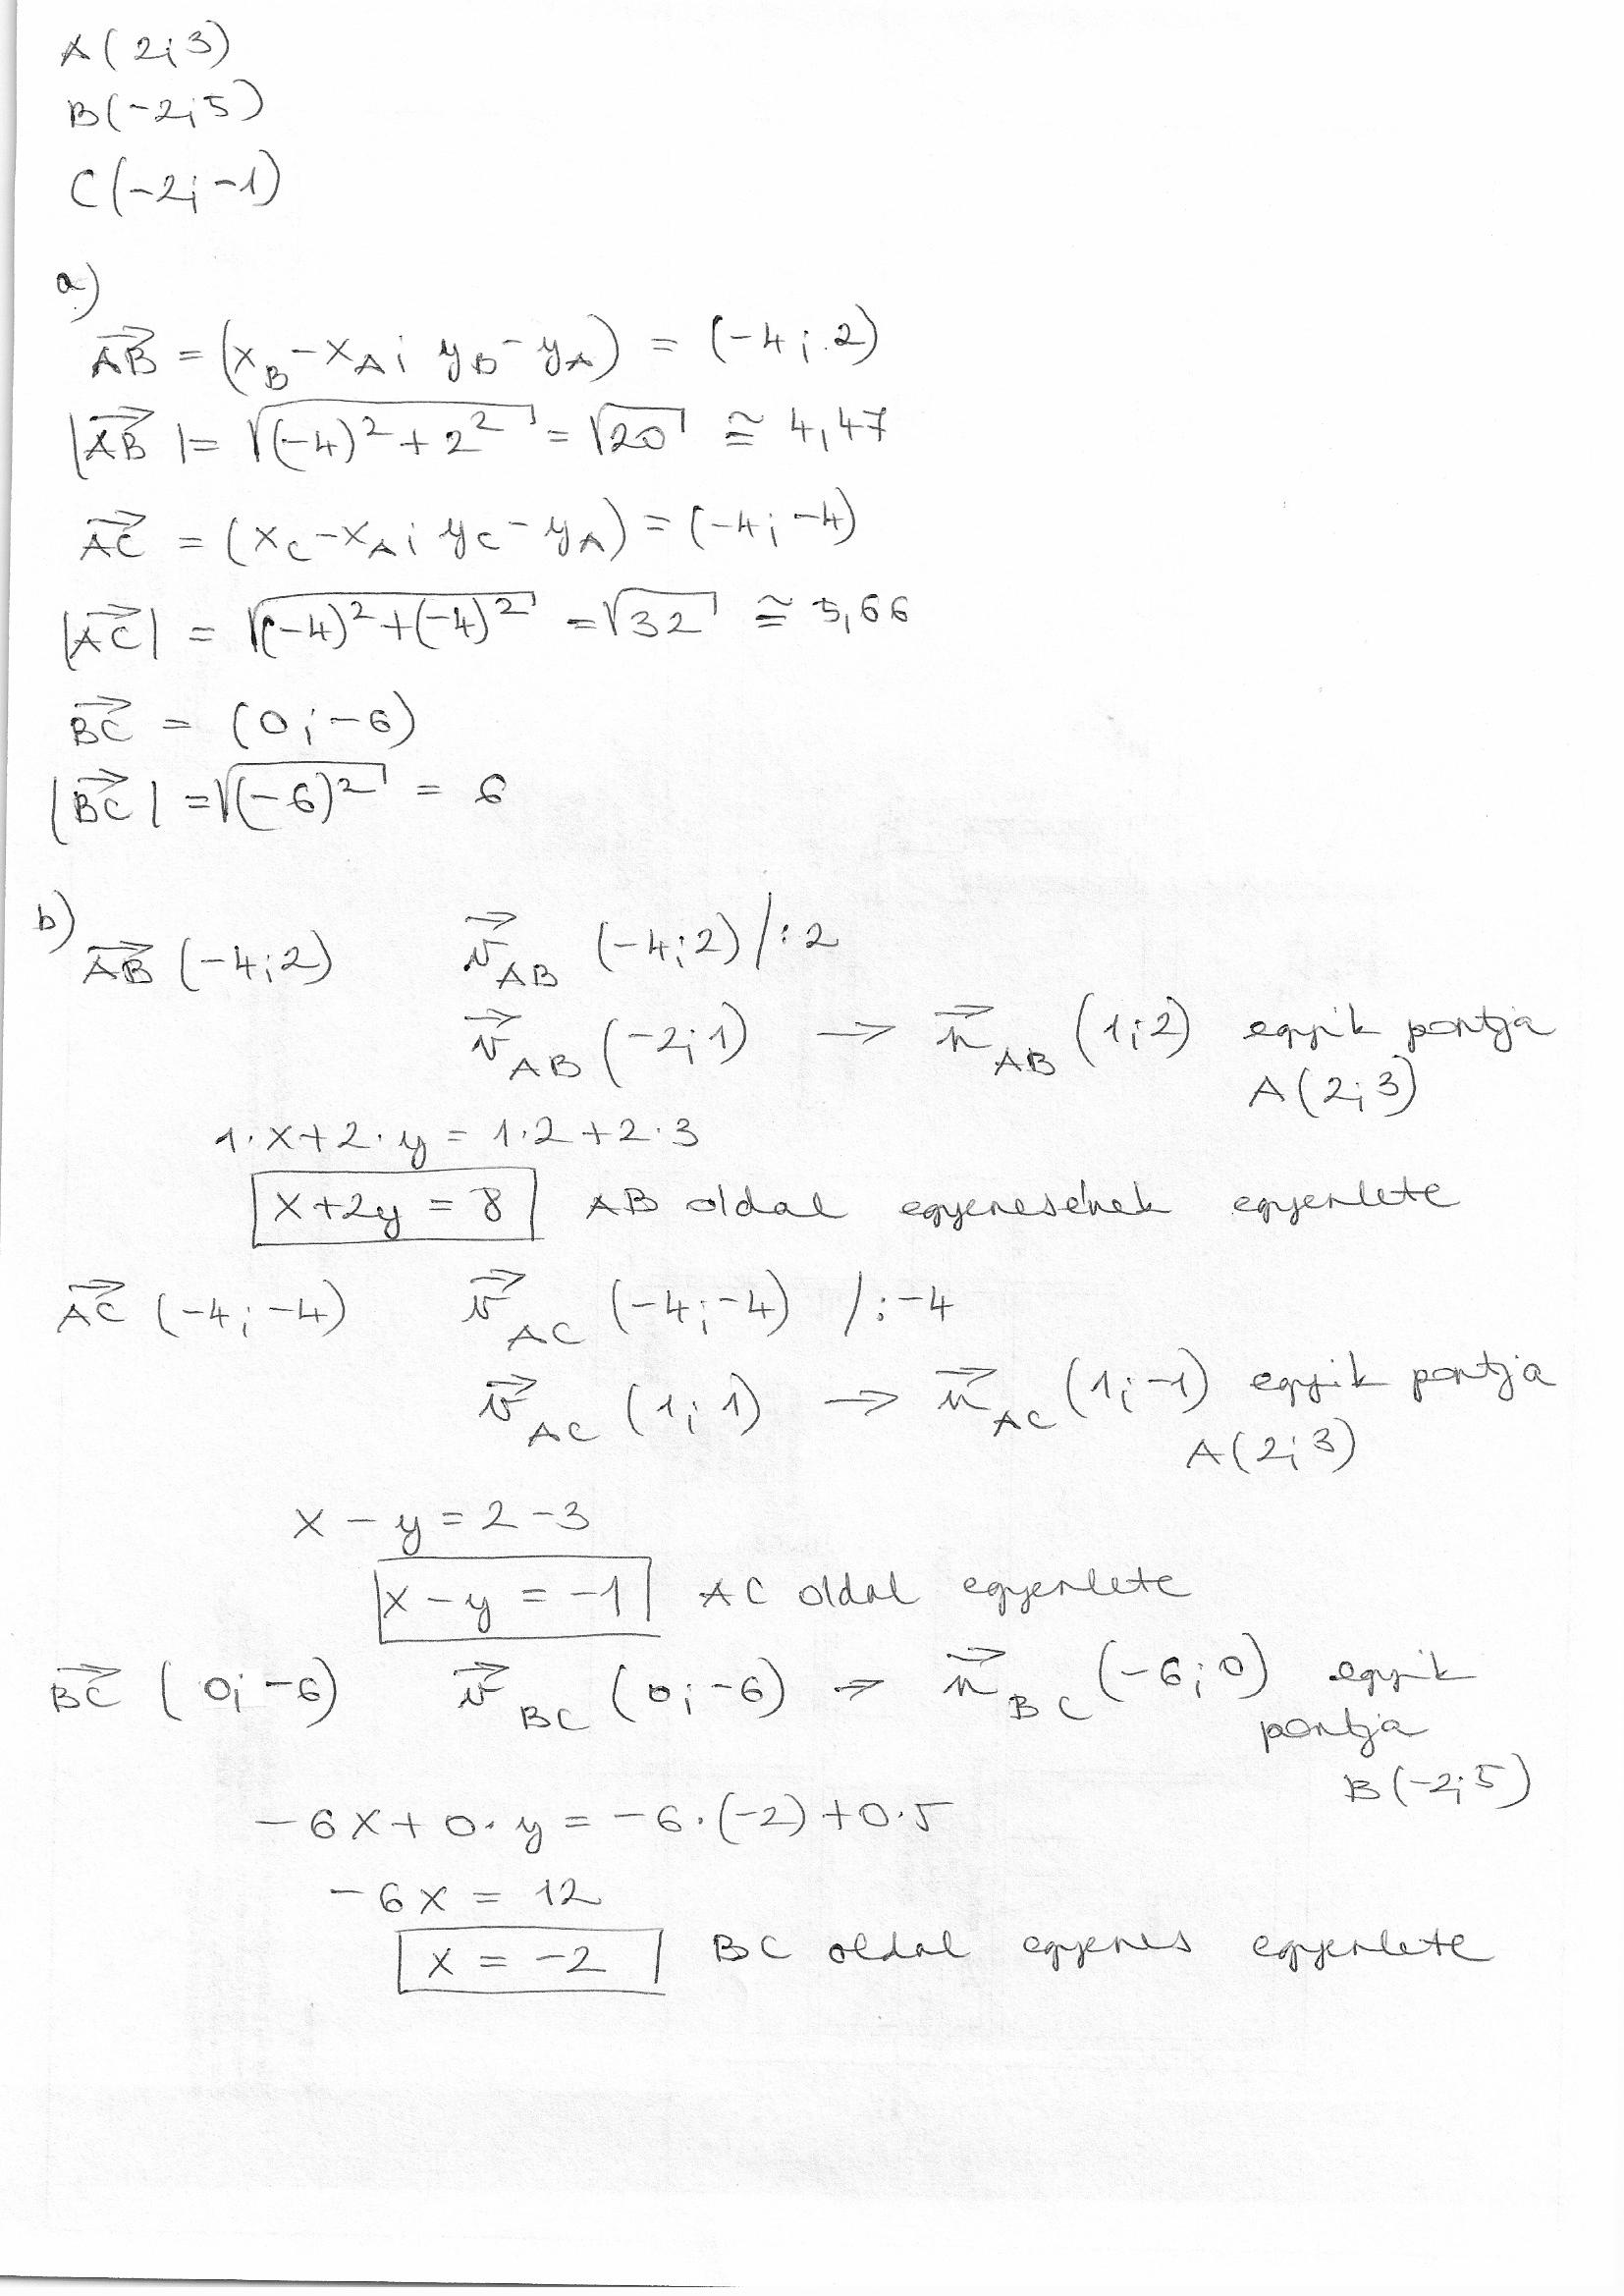 A(2;3)
B(-2;5)
C(-2;-1)
a)
AB⃗ = (x_B-x_A; y_B-y_A) = (-4; 2)
|AB⃗| = √((-4)²+2²) = √20 ≅ 4,47
AC⃗ = (x_C-x_A; y_C-y_A) = (-4; -4)
|AC⃗| = √((-4)²+(-4)²) = √32 ≅ 5,66
BC⃗ = (0; -6)
|BC⃗| = √((-6)²) = 6
b) AB⃗ (-4;2) v⃗_AB (-4;2) /:2
v⃗_AB (-2;1) → n⃗_AB (1;2) egyik pontja
A(2;3)
1·x+2·y = 1·2+2·3
x+2y = 8 AB oldal egyenesének egyenlete
AC⃗ (-4;-4) v⃗_AC (-4;-4) /:-4
v⃗_AC (1;1) → n⃗_AC (1;-1) egyik pontja
A(2;3)
x - y = 2 - 3
x - y = -1 AC oldal egyenlete
BC⃗ (0; -6) v⃗_BC (0; -6) → n⃗_BC (-6;0) egyik
pontja
B(-2;5)
-6x+0·y = -6·(-2)+0·5
-6x = 12
x = -2 BC oldal egyenes egyenlete